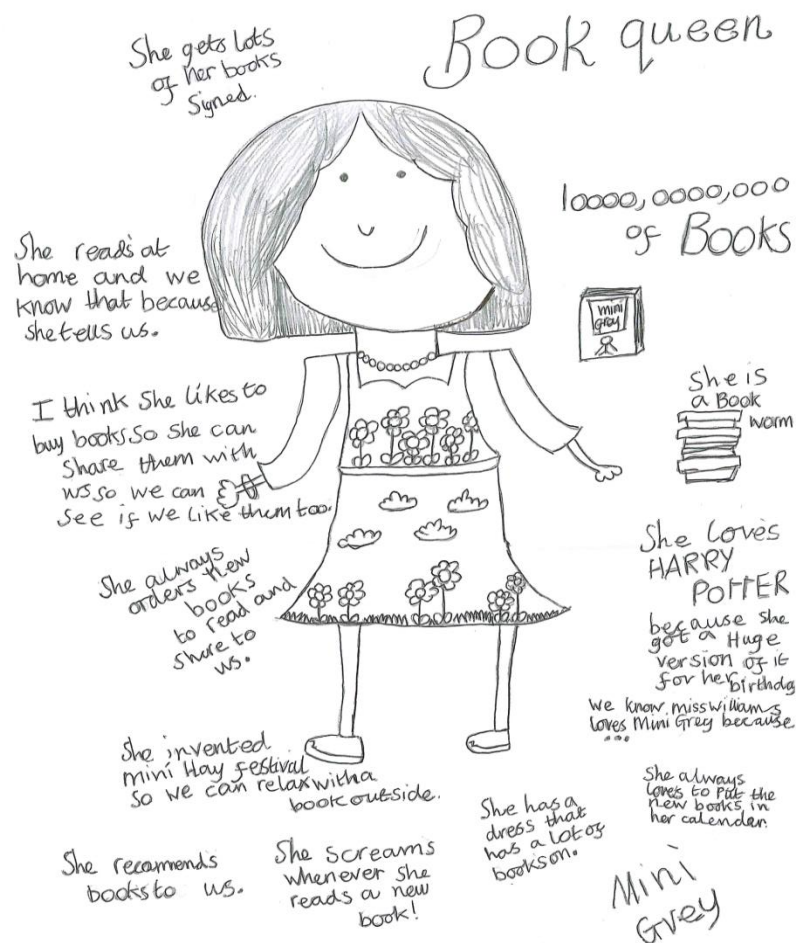 Book queen
She gets lots
of her books
signed.
10000,0000,000
of Books
She reads at
home and we
know that because
she tells us.
mini
Grey
I think she likes to
buy books so she can
share them with
us so we can
see if we like them too.
She is
a Book
worm
She always
orders new
books
to read and
share to
us.
She loves
HARRY
POTTER
because she
got a Huge
version of it
for her birthday
we know miss williams
loves Mini Grey because
...
She invented
mini Hay festival
so we can relax with a
book outside.
She always
loves to put the
new books in
her calender.
She has a
dress that
has a lot of
books on.
She recommends
books to us.
She screams
whenever she
reads a new
book!
Mini
Grey